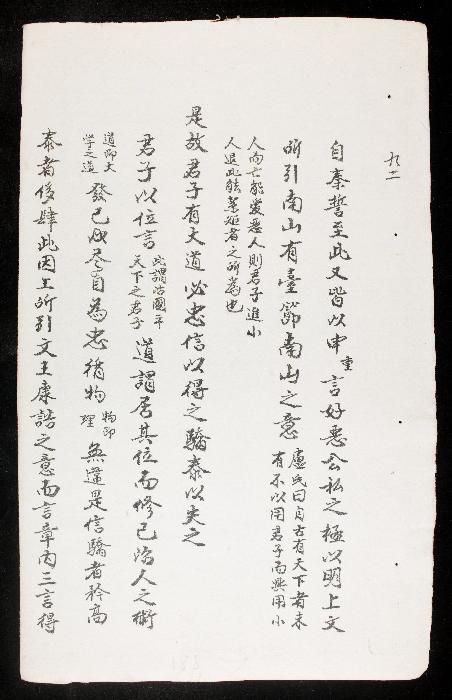 九二
自秦誓至此又皆以申重言好惡公私之極以明上文
所引南山有臺節南山之意
盧氏曰自古有天下者未
有不以用君子而興用小
人而亡能愛惡人則君子進小
人退此能絜矩者之所為也
是故君子有大道必忠信以得之驕泰以失之
君子以位言
此謂治國平
天下之君子
道謂居其位而修己治人之術
道即大
學之道
發己尽自為忠循物
物即
理
無違是信驕者矜高
泰者侈肆此因上所引文王康誥之意而言章內三言得